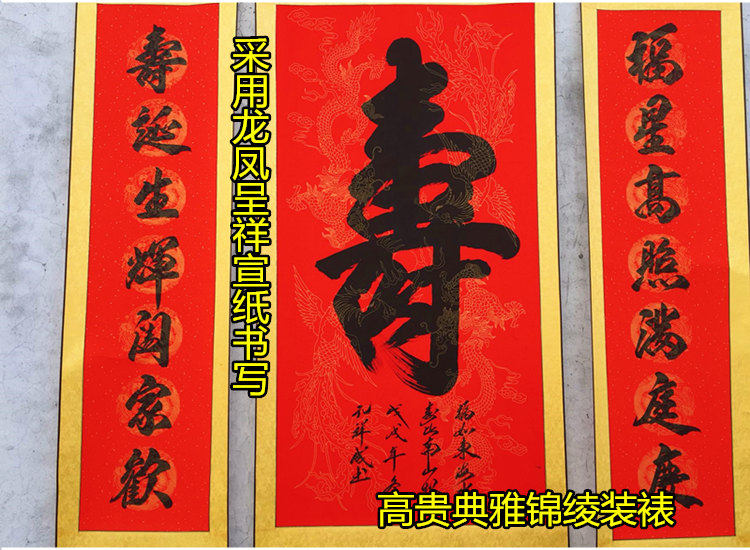 采用龙凤呈祥宣纸书写
福星高照满庭慶
寿
寿延生輝阖家歡
福如东海
寿比南山
戊戌年冬
孔祥成书
高贵典雅锦绫装裱